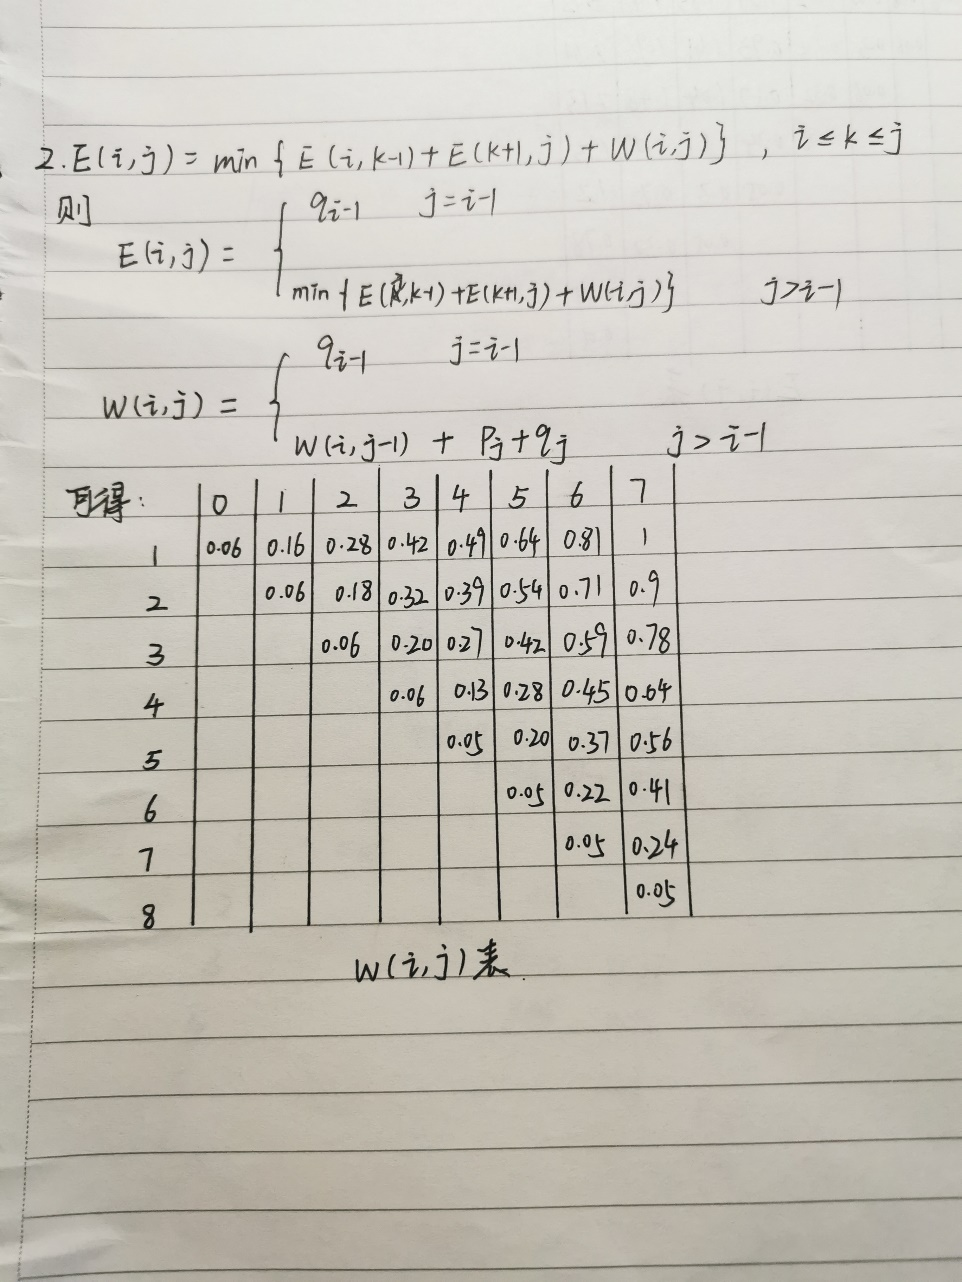 2. E(i,j) = min { E(i,k-1) + E(k+1,j) + W(i,j)} , i ≤ k ≤ j
则
E(i,j) = { q_{i-1} j=i-1
min { E(i,k-1)+E(k+1,j)+W(i,j)} j>i-1
W(i,j) = { q_{i-1} j=i-1
W(i,j-1) + P_j+q_j j > i-1
可得: 0 1 2 3 4 5 6 7
1 0.06 0.16 0.28 0.42 0.49 0.64 0.81 1
2 0.06 0.18 0.32 0.39 0.54 0.71 0.9
3 0.06 0.20 0.27 0.42 0.59 0.78
4 0.06 0.13 0.28 0.45 0.64
5 0.05 0.20 0.37 0.56
6 0.05 0.22 0.41
7 0.05 0.24
8 0.05
W(i,j)表.